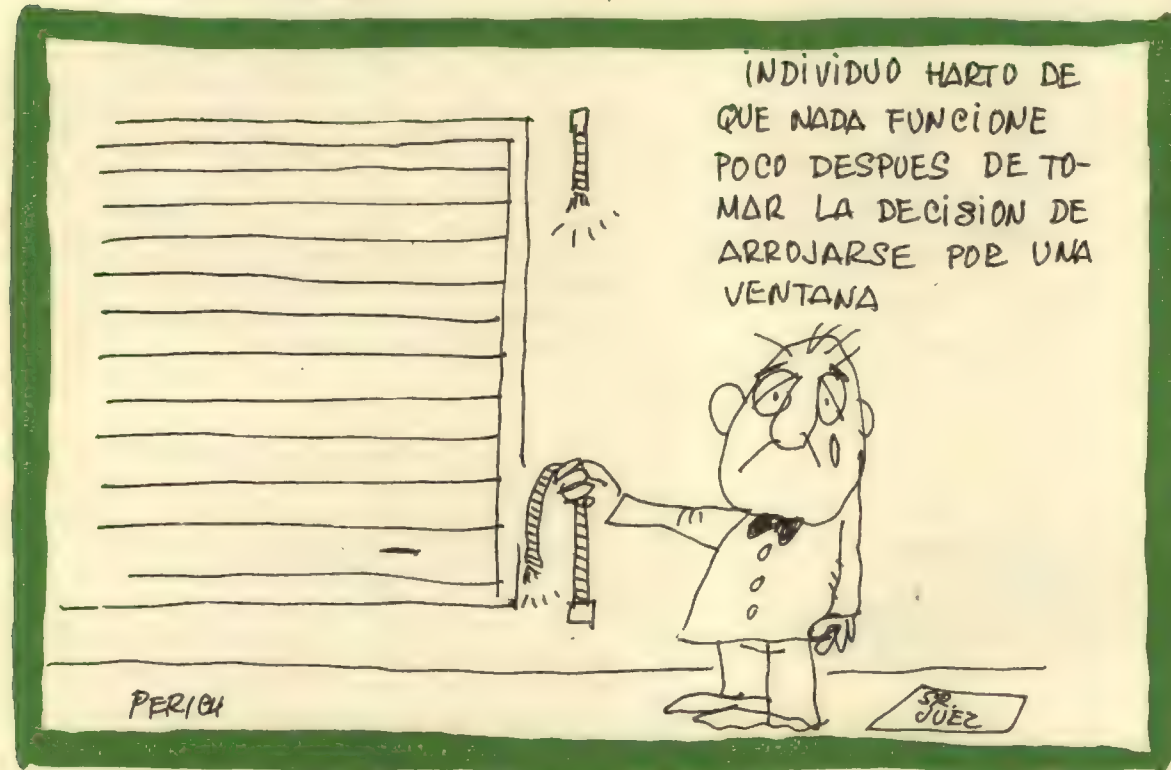 INDIVIDUO HARTO DE
QUE NADA FUNCIONE
POCO DESPUES DE TO-
MAR LA DECISION DE
ARROJARSE POR UNA
VENTANA
PERICH
SR.
JUEZ